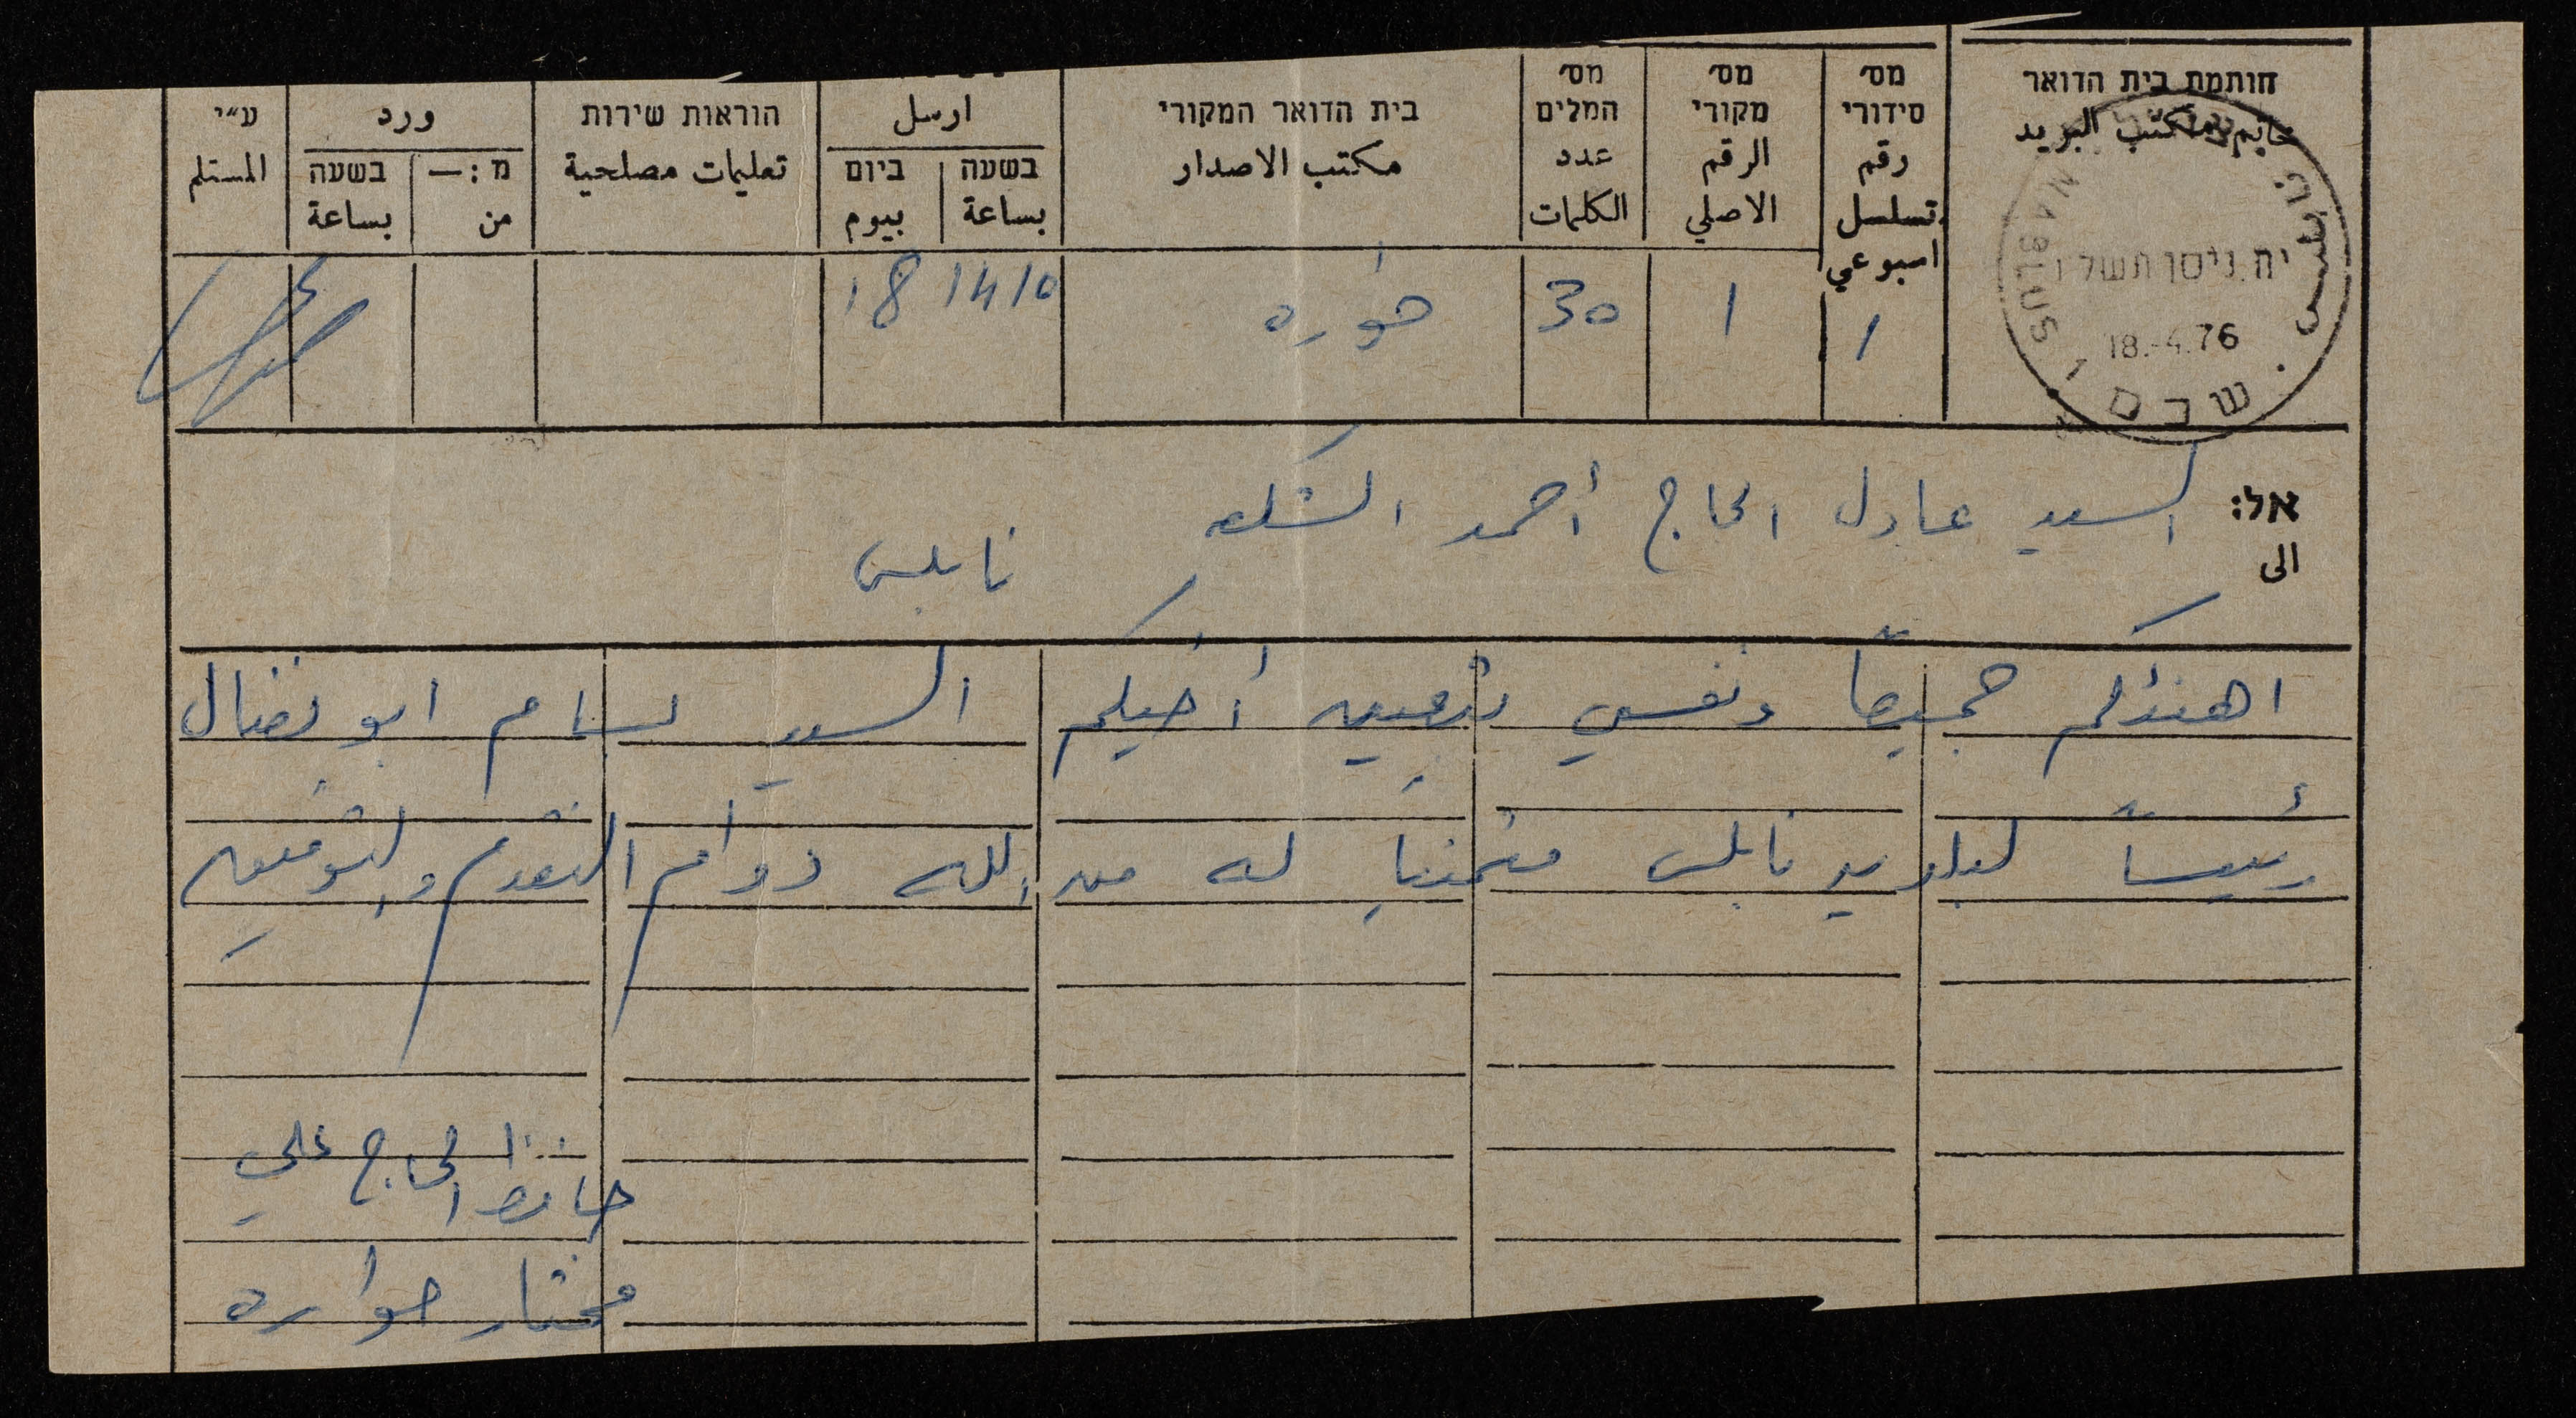 חותמת בית הדואר
خاتم مكتب البريد
מס׳ סידורי
رقم تسلسل اسبوعي
מס׳ מקורי
الرقم الاصلي
מס׳ המלים
عدد الكلمات
בית הדואר המקורי
مكتب الاصدار
ارسل
בשעה
بساعة
ביום
بيوم
הוראות שירות
تعليمات مصلحية
ورد
מ:—
من
בשעה
بساعة
ע״י
المستلم
نابلس
NABLUS
שכם
יח ניסן תשל״ו
18.-4.76
1
1
30
حواره
1410
18
אל:
الى
السيد عادل الحاج أحمد الشكعه
نابلس
اهنئكم جميعاً ونفسي بتعيين أخيكم السيد بسام ابو نضال
رئيساً لبلدية نابلس متمنيا له من الله دوام التقدم والتوفيق
حافظ الحاج علي
مختار حواره